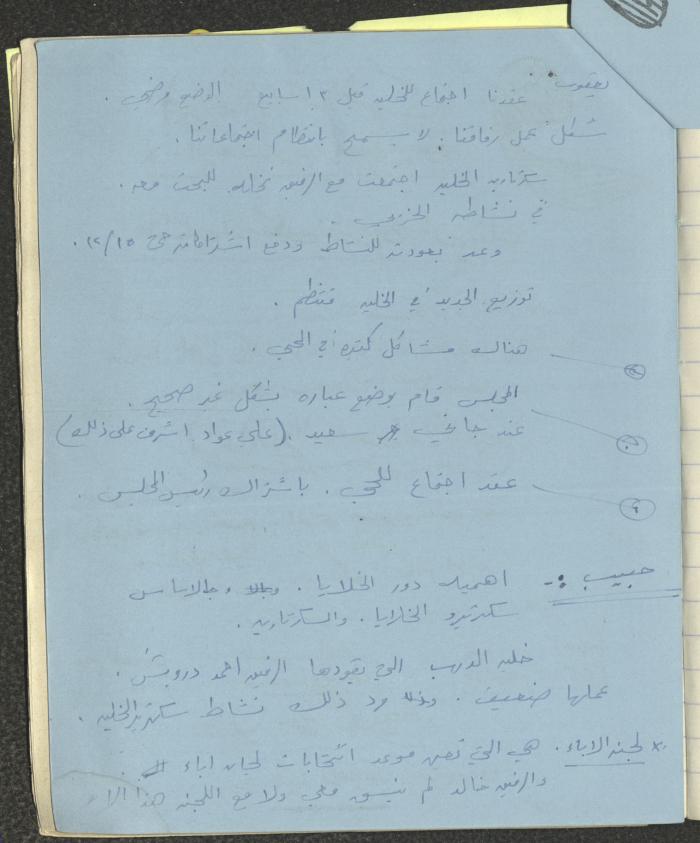 يعقوب: عقدنا اجتماع للخليه قبل ٣ اسابيع الوضع مرضي.
شكل عمل رفاقنا. لا يسمح بانتظام اجتماعاتنا.
سكرتارية الخليه اجتمعت مع الرفيق نخله للبحث معه.
في نشاطه الحزبي.
وعد بعودته للنشاط ودفع اشتراكاته حتى ١٢/١٥.
توزيع الجديد في الخليه منتظم.
هناك مشاكل كثيره في الحي.
المجلس قام بوضع عباره بشكل غير صحيح.
عند جاني سعيد. (علي عواد اشرف على ذلك)
عقد اجتماع للحي. باشتراك رئيس المجلس.
حبيب:- اهمية دور الخلايا. وبالاساس
سكرتيرو الخلايا. والسكرتاريه.
خليه الدرب التي يقودها الرفيق احمد درويش.
عملها ضعيف. مرد ذلك نشاط سكرتير الخليه.
* لجنة الاباء. هي التي تعين موعد انتخابات لجان اباء
والرفيق خالد لم ينسق معي ولا مع اللجنه هذا